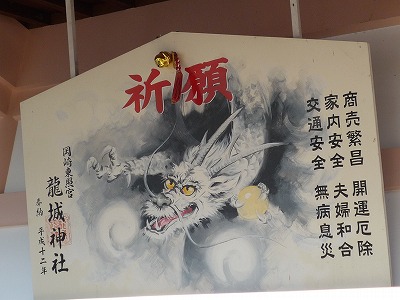 祈願
商売繁昌 開運厄除
家内安全 夫婦和合
交通安全 無病息災
岡崎東照宮
龍城神社
奉納 平成十二年